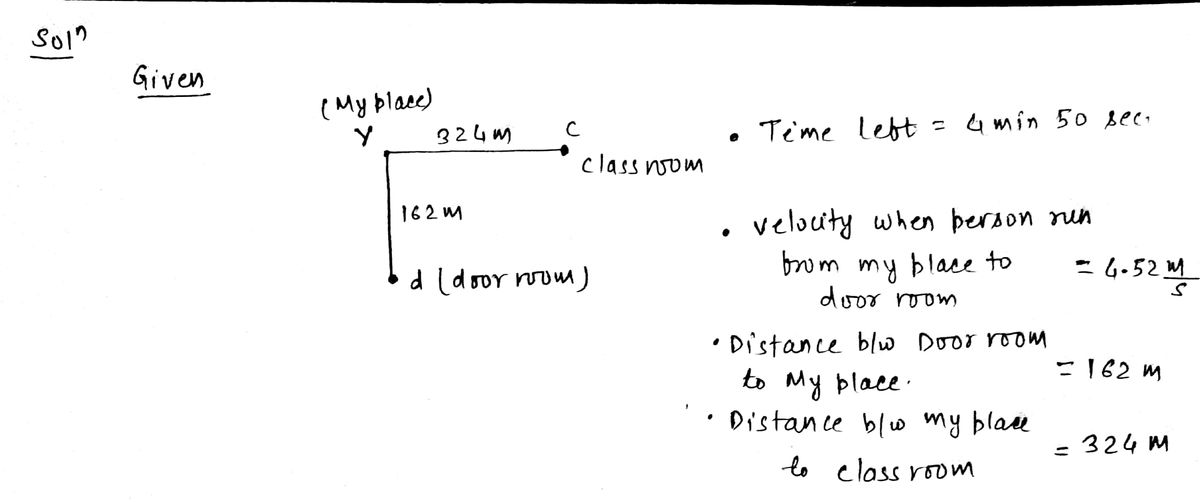 Solⁿ
Given
(My place)
Y 324m C
class room
162 m
d (door room)
• Time left = 4 min 50 sec.
• velocity when person run
from my place to = 4.52 m/s
door room
• Distance b/w Door room
to My place. = 162 m
• Distance b/w my place
= 324 m
to class room